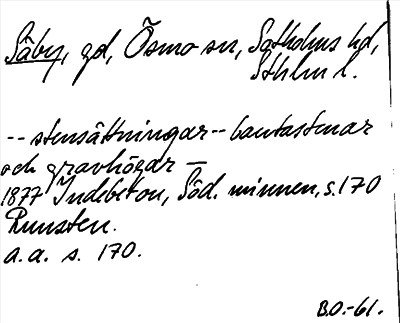 Säby, gd, Ösmo sn, Sotholms hd,
Sthlm l.
-- stensättningar -- bautastenar
och gravhögar —
1877 Indebetou, Söd. minnen, s. 170
Runsten.
a. a. s. 170.
B.O.-61.